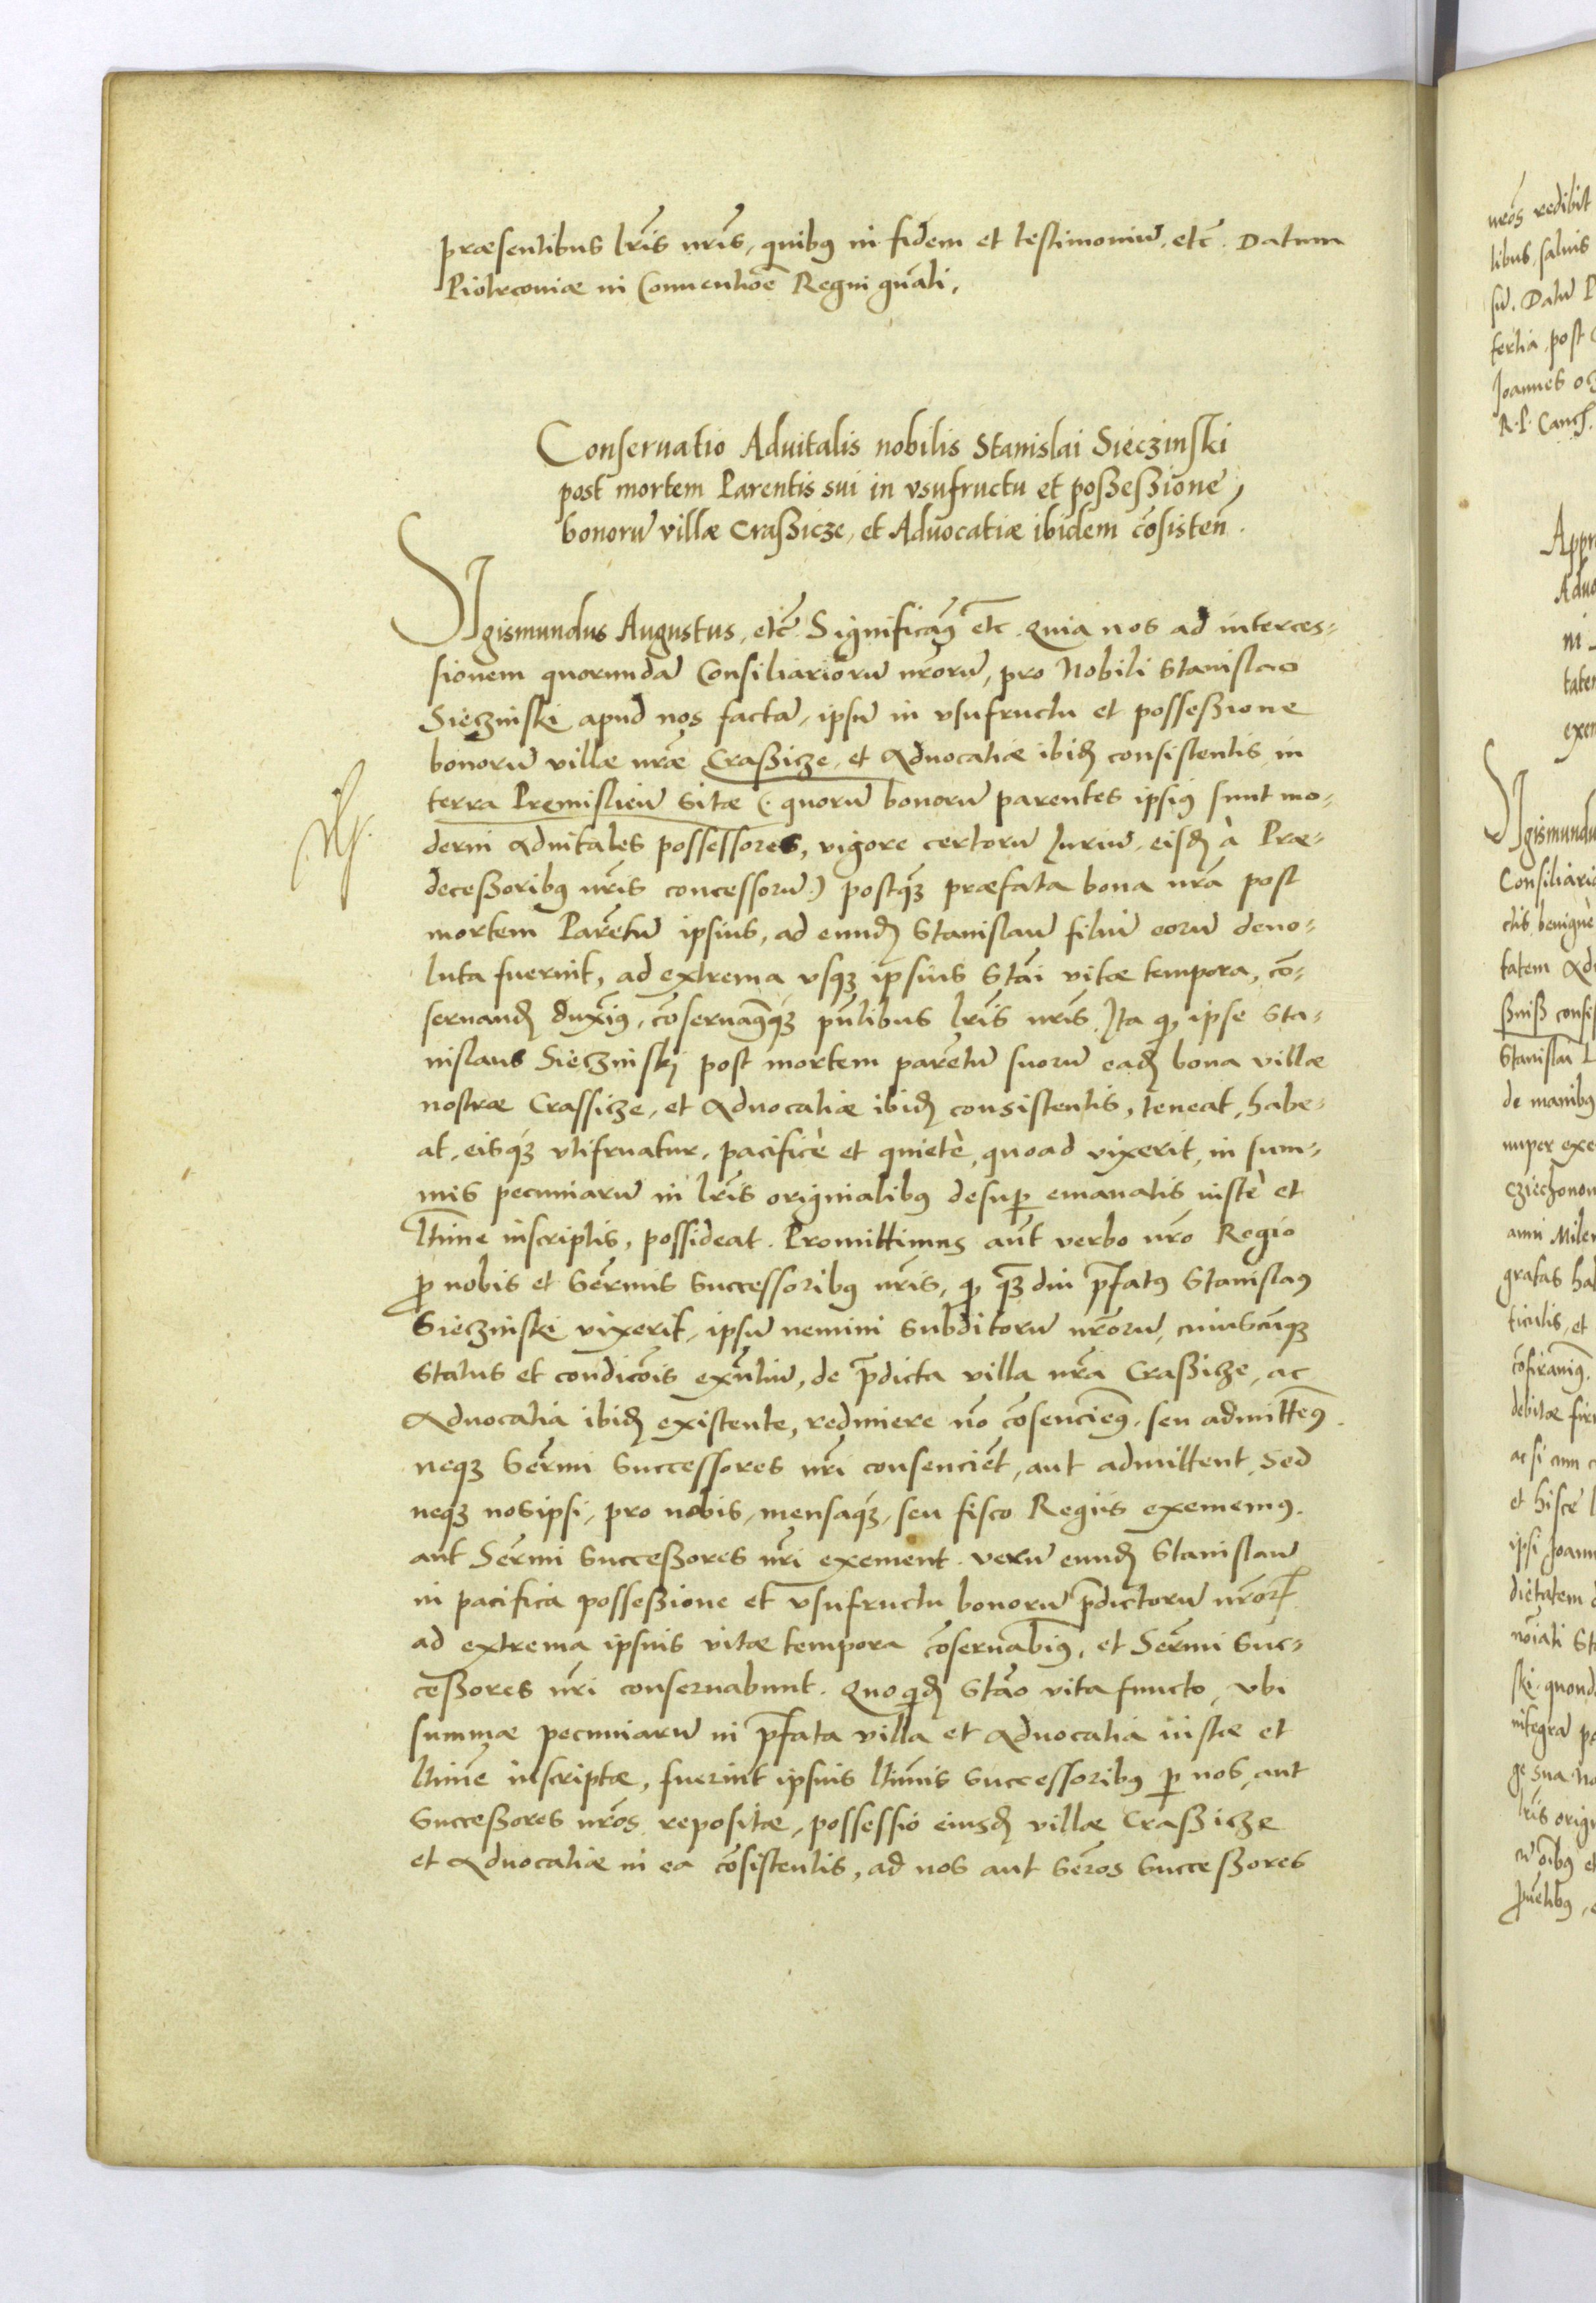 præsentibus lr̃is nr̃is, quibus in fidem et testimoniũ, etc̃. Datum
Piotrcoviæ in Conventiõe Regni gñali.
Conservatio Advitalis nobilis Stanislai Sieczinski
post mortem Parentis sui in usufructu et poßeßione,
bonorũ villæ Craßicze, et Advocatiæ ibidem cõsisteñ.
Sigismundus Augustus, etc̃. Significam9 etc̃. Quia nos ad interces-
sionem quorundã Consiliariorũ nrõrũ, pro Nobili Stanislao
Sieczinski apud nos factã, ipsũ in usufructu et posseßione
bonorũ villæ nr̃æ Craßicze, et Advocatiæ ibid̃ consistentis, in
terra Premisliẽn̄ sitæ (quorũ bonorũ parentes ipsi9 sunt mo-
derni Advitales possessores, vigore certorũ Juriũ, eisd̃ à Præ-
deceßoribus nr̃is concessorũ) postq̃3 præfata bona nr̃a post
mortem Parẽtũ ipsius, ad eund̃ Stanislaũ filiũ eorũ devo-
luta fuerint, ad extrema usq3 ipsius Stãi vitæ tempora, cõ-
servand̃ duxim9, cõservam9q3 pñtibus lr̃is nr̃is. Ita q̃, ipse Sta-
nislaus Sieczinskj post mortem parẽtũ suorũ ead̃ bona villæ
nostræ Crassicze, et Advocatiæ ibid̃ consistentis, teneat, habe-
at, eisq3 utifruatur, pacificè et quietè, quoad vixerit, in sum-
mis pecuniarũ in lr̃is originalibus desup emanatis iustè et
ltim̃e inscriptis, possideat. Promittimus aũt verbo nr̃o Regio
p nobis et Serm̃is Successorib9 nr̃is, q̃ q̃3 diu p̃fat9 Stanisla9
Sieczinski vixerit, ipsũ nemini subditorũ nrõrũ, cuiuscũq3
status et condicõis exñtiũ, de p̃dicta villa nr̃a Craßicze, ac
Advocatia ibid̃ existente, redimere nõ cõsenciem9, seu admittem9.
neq3 Serm̃i Successores nr̃i consenciẽt, aut admittent, Sed
neq3 nosipsi, pro nobis, mensaq3, seu fisco Regiis exememus.
aut Serm̃i Succeßores nr̃i exement. verũ eund̃ Stanislaũ
in pacifica posseßione et usufructu bonorũ p̃dictorũ nrõr̃
ad extrema ipsius vitæ tempora cõservabim9, et Serm̃i Suc-
ceßores nr̃i conservabunt. Quoquid̃ Stão vita functo, ubi
summæ pecuniarũ in p̃fata villa et Advocatia iustæ et
ltim̃e inscriptæ, fuerint ipsius ltim̃is Successoribus p nos, aut
Succeßores nr̃os repositæ, possessio eiusd̃ villæ Craßicze
et Advocatiæ in ea cõsistentis, ad nos aut Serõs Succeßores
nr̃os redibit
libus, salvis
sũ. Datũ P
tertia post
Joannes
R. P. Canc̃.
Appr
Advo
ni
tatem
exem
Sigismundu
Consiliario
ctis benignè
tatem Ad
Stanislai
de manibus
nuper exe
anni Mile
gratas hab
ticulis, et
cõfirmam9.
debitæ fir
ac si cum
et hisce
ipsi Joann
noĩati
ski quond
integra
ge sua
lr̃is orig
pñtibus,